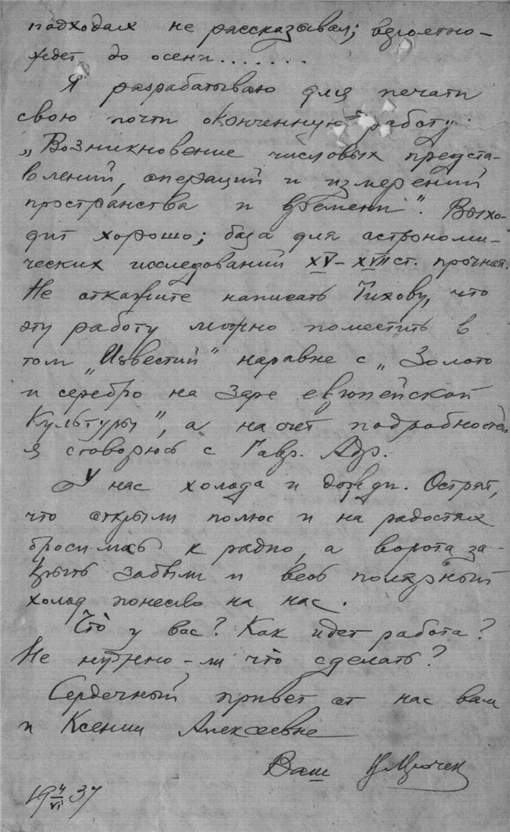 подходах не рассказывал; вероятно-
ждет до осени.......
Я разрабатываю для печати
свою почти оконченную работу:
„Возникновение числовых предста-
влений, операций и измерений
пространства и времени". Выхо-
дит хорошо; база для астрономи-
ческих исследований XV-XVII ст. прочная.
Не откажите написать Тихову, что
эту работу можно поместить в
том „Известий" наравне с „Золото
и серебро на заре европейской
культуры", а насчет подробностей
я сговорюсь с Гавр. Адр.
У нас холода и дожди. Острят,
что открыли полюс и на радостях
бросились к радио, а ворота за-
крыть забыли и весь полярный
холод понесло на нас.
Что у вас? Как идет работа?
Не нужно-ли что сделать?
Сердечный привет от нас вам
и Ксении Алексеевне
Ваш
19 4/VI 37